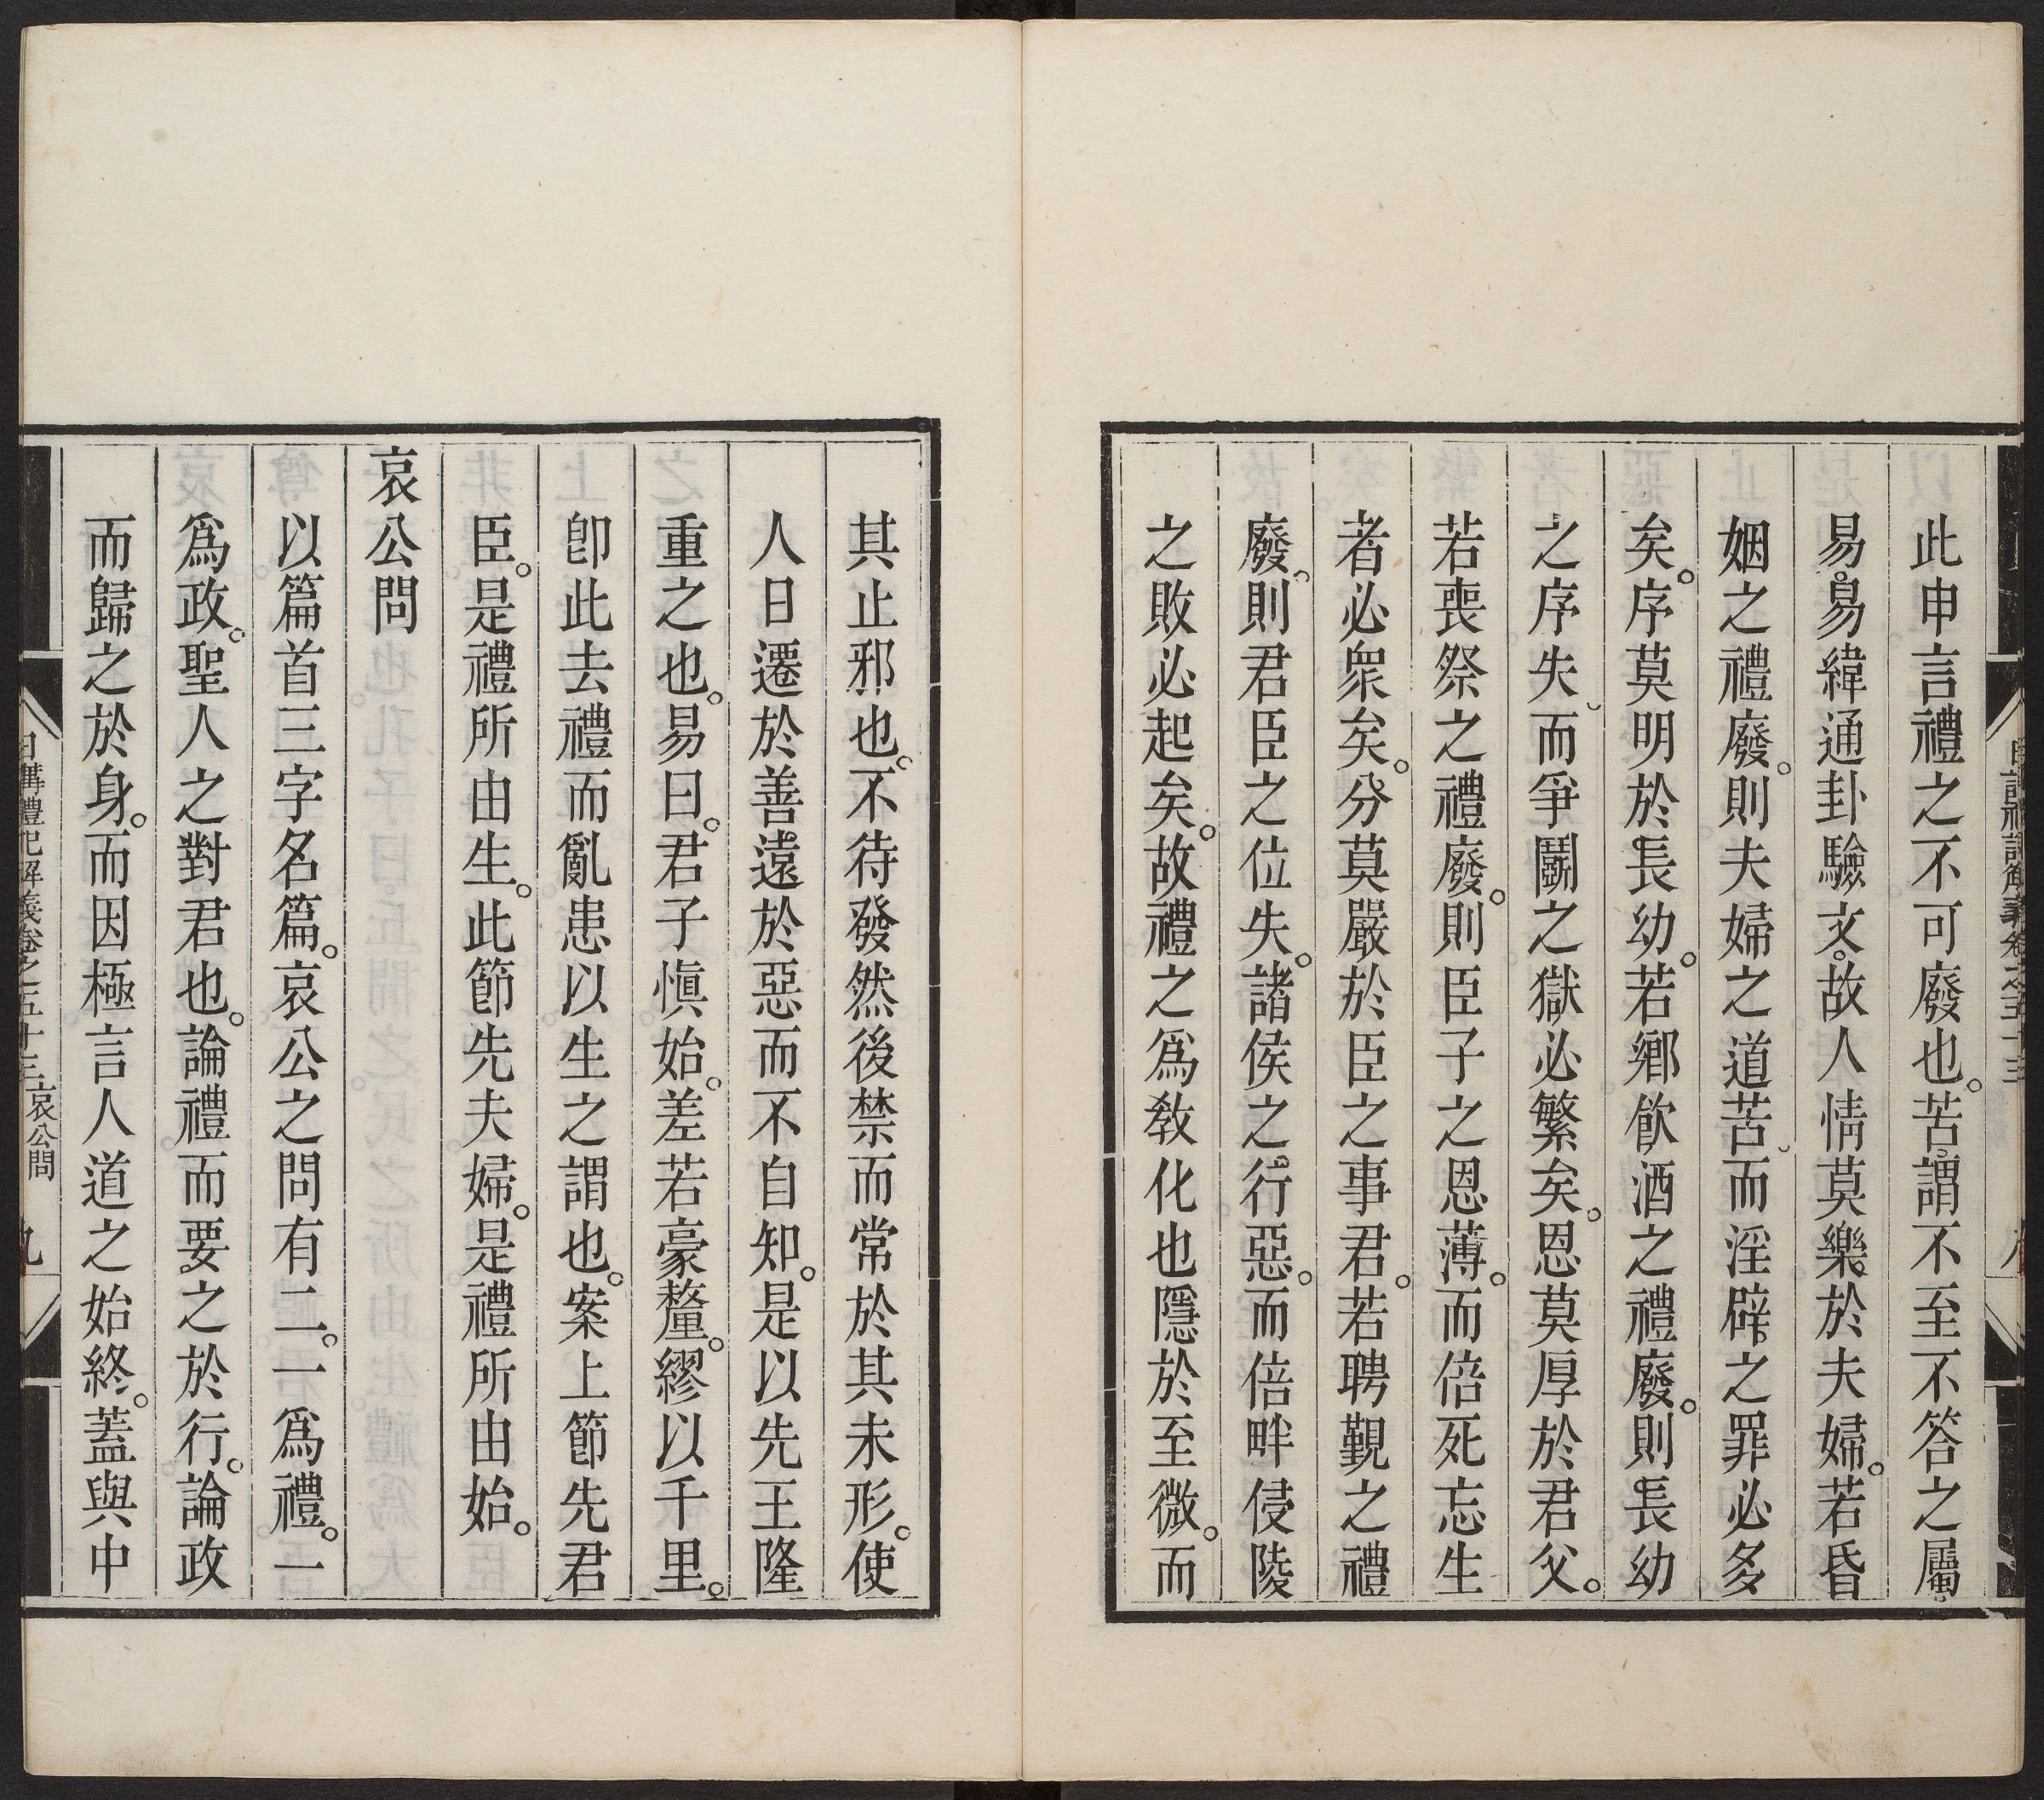 此申言禮之不可廢也。苦。謂不至不答之屬
易。易緯通卦驗文。故人情莫樂於夫婦。若昏
姻之禮廢。則夫婦之道苦、而淫辟之罪必多
矣。序莫明於長幼。若鄉飲酒之禮廢。則長幼
之序失、而爭鬭之獄必繁矣。恩莫厚於君父。
若喪祭之禮廢。則臣子之恩薄。而倍死忘生
者必眾矣。分莫嚴於臣之事君。若聘覲之禮
廢。則君臣之位失。諸侯之行惡。而倍畔侵陵
之敗必起矣。故禮之爲教化也隱於至微。而
其止邪也。不待發然後禁而常於其未形。使
人日遷於善。遠於惡而不自知。是以先王隆
重之也。易曰。君子慎始。差若豪釐。繆以千里。
卽此去禮而亂患以生之謂也。案上節先君
臣。是禮所由生。此節先夫婦。是禮所由始。
哀公問
以篇首三字名篇。哀公之問有二。一爲禮。一
爲政。聖人之對君也。論禮而要之於行。論政
而歸之於身。而因極言人道之始終。蓋與中
日講禮記解義卷之五十三 哀公問 九